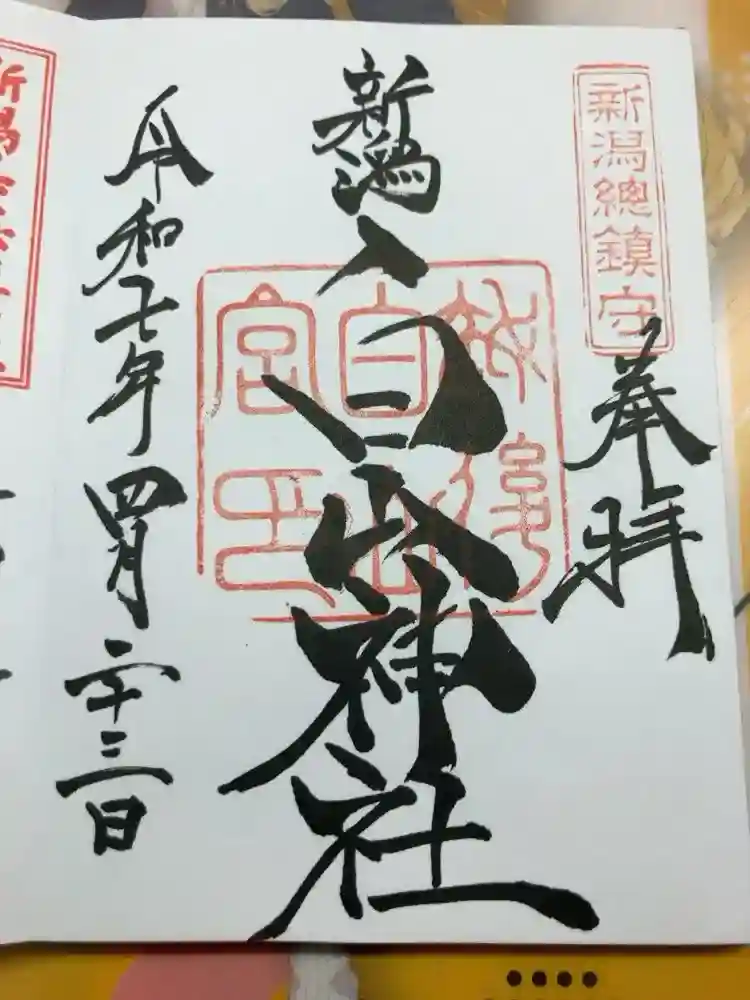 新潟總鎮守
奉拝
新潟白山神社
越後
白山
宮印
令和七年四月二十三日
新潟